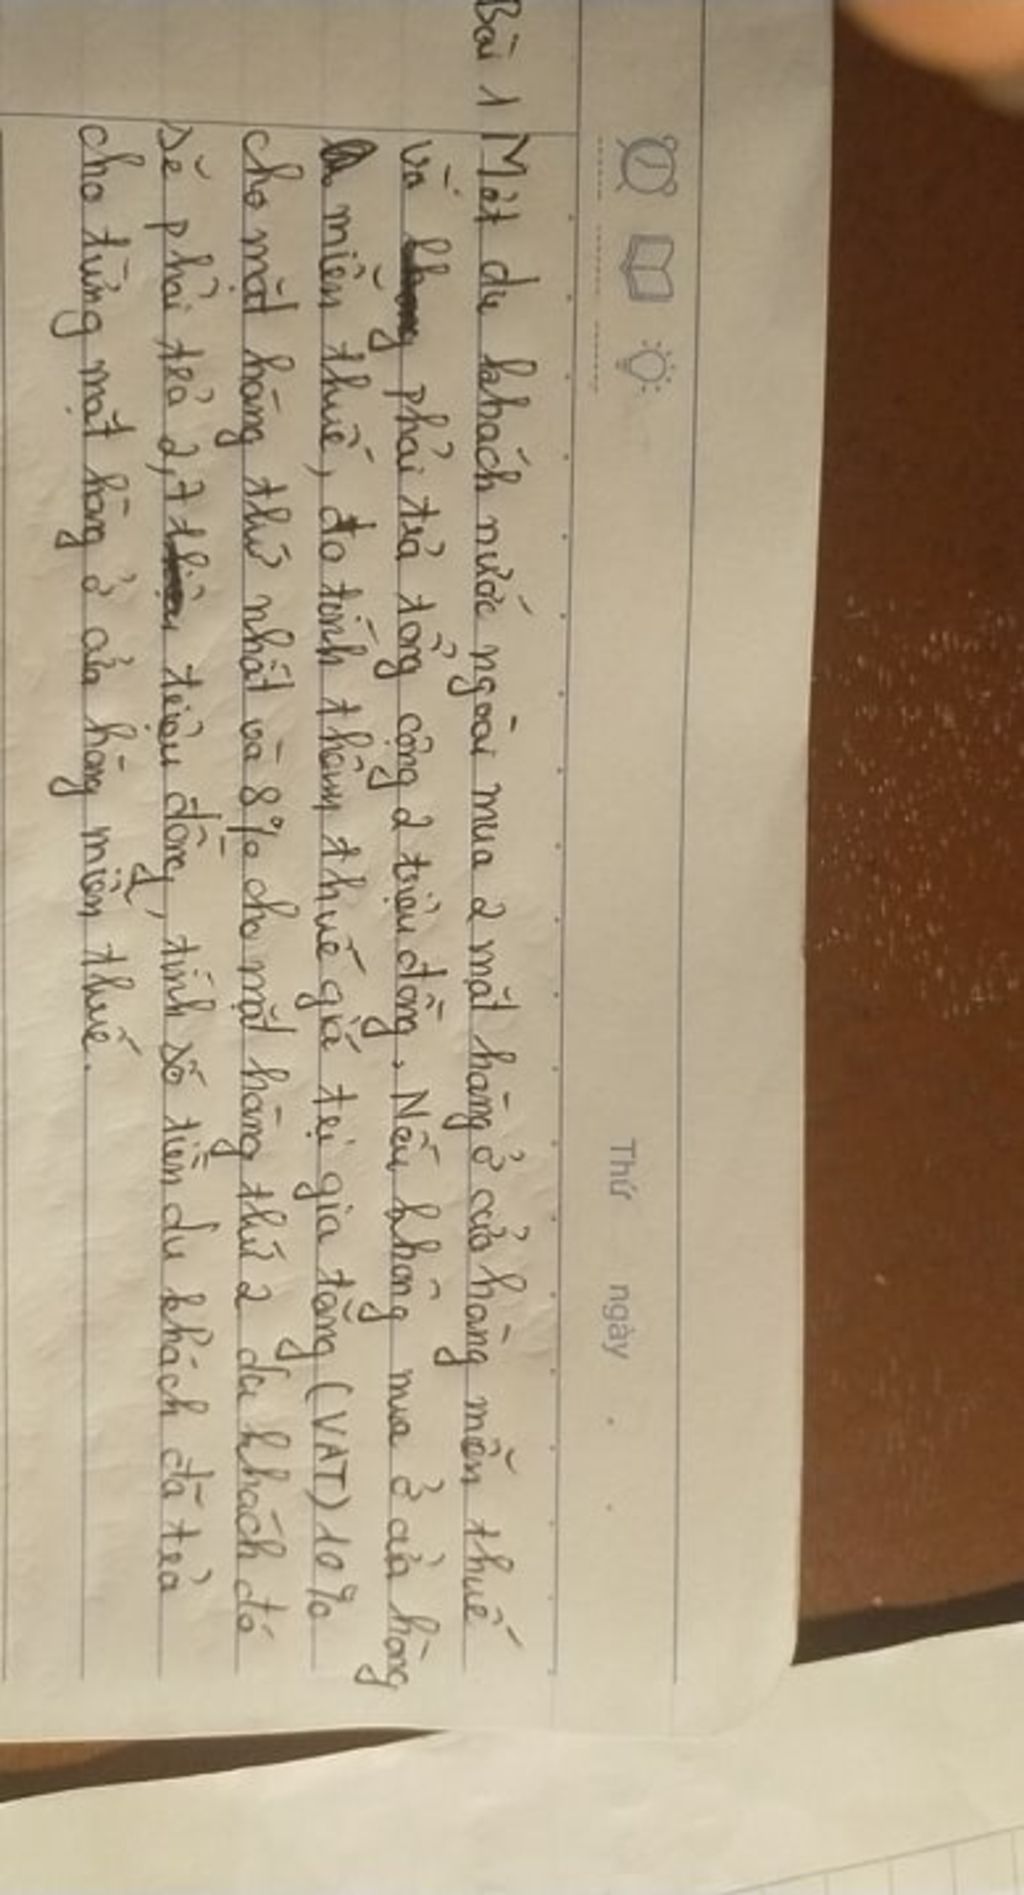 Thứ ngày
Bài 1 Một du khách nước ngoài mua 2 mặt hàng ở cửa hàng miễn thuế
và phải trả tổng cộng 2 triệu đồng. Nếu không mua ở cửa hàng
miễn thuế, do tính thêm thuế giá trị gia tăng (VAT) 10%
cho mặt hàng thứ nhất và 8% cho mặt hàng thứ 2 du khách đó
sẽ phải trả 2,7 triệu đồng, tính số tiền du khách đã trả
cho từng mặt hàng ở cửa hàng miễn thuế.